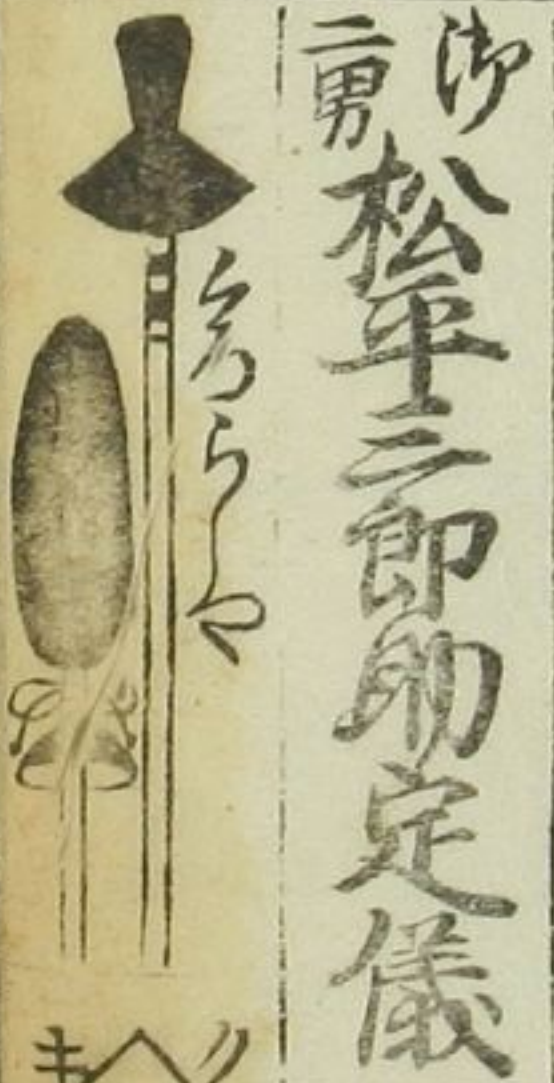 御
二男
松平三郎助定儀
くろらしや